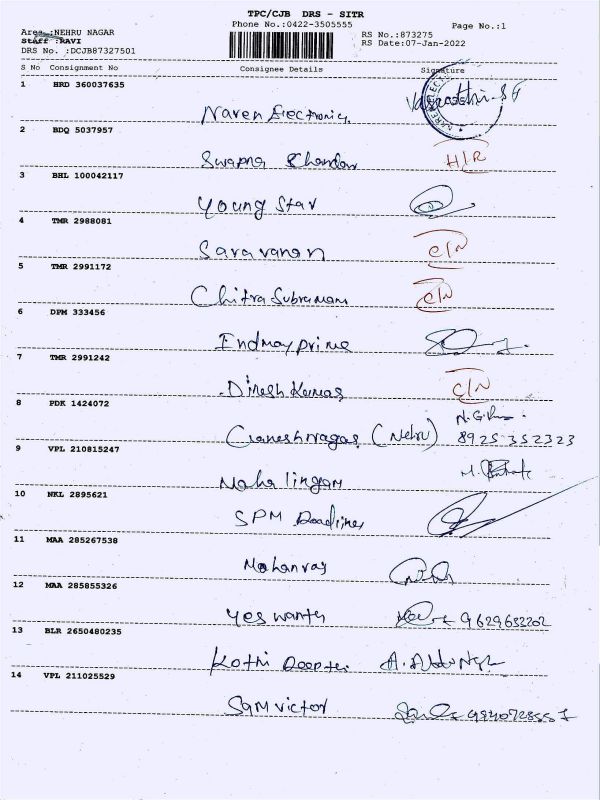 TPC/CJB DRS - SITR
Phone No.:0422-3505555
Page No.:1
Area :NEHRU NAGAR
Staff :RAVI
DRS No. :DCJB87327501
RS No.:873275
RS Date:07-Jan-2022
S No Consignment No Consignee Details Signature
1 HRD 360037635
Naren Electronics
2 BDQ 5037957
Swapna Chandan H/R
3 BHL 100042117
Young Star
4 TMR 2988081
Saravanan C/N
5 TMR 2991172
Chitra Subramani C/N
6 DPM 333456
Endmayprime
7 TMR 2991242
Dinesh Kumar C/N
8 PDK 1424072
Ganeshnagar (Nehru) 8925352323
9 VPL 210815247
Mahalingam
10 NKL 2895621
SPM
11 MAA 285267538
Mohanraj
12 MAA 285855326
Yeswanth 9629633202
13 BLR 2650480235
Kothi
14 VPL 211025529
Sam victor